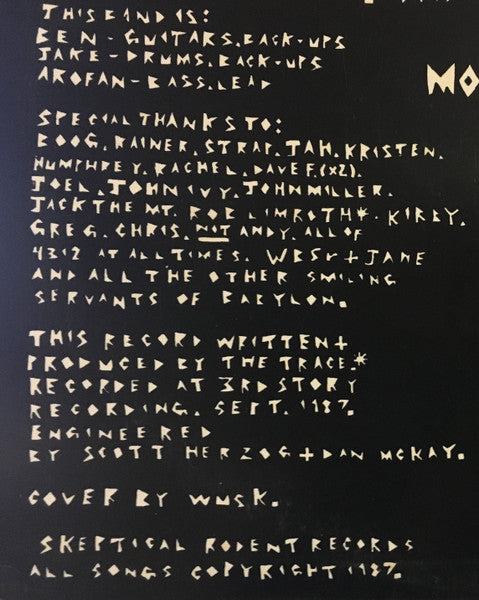 THIS BAND IS:
BEN - GUITARS. BACK-UPS
JAKE - DRUMS. BACK-UPS
AROFAN - BASS. LEAD
MO
SPECIAL THANKS TO:
BOOG. RAINER. STRAP. JAH. KRISTEN.
HUMPHREY. RACHEL. DAVE F. (XZ).
JOEL. JOHN IVY. JOHN MILLER.
JACK THE MT. ROB LIMROTH*. KIRBY.
GREG. CHRIS. NOT ANDY. ALL OF
4312 AT ALL TIMES. WBSY + JANE
AND ALL THE OTHER SMILING
SERVANTS OF BABYLON.
THIS RECORD WRITTEN +
PRODUCED BY THE TRACE.*
RECORDED AT 3RD STORY
RECORDING. SEPT. 1987.
ENGINEERED
BY SCOTT HERZOG + DAN MCKAY.
COVER BY WUSK.
SKEPTICAL RODENT RECORDS
ALL SONGS COPYRIGHT 1987.